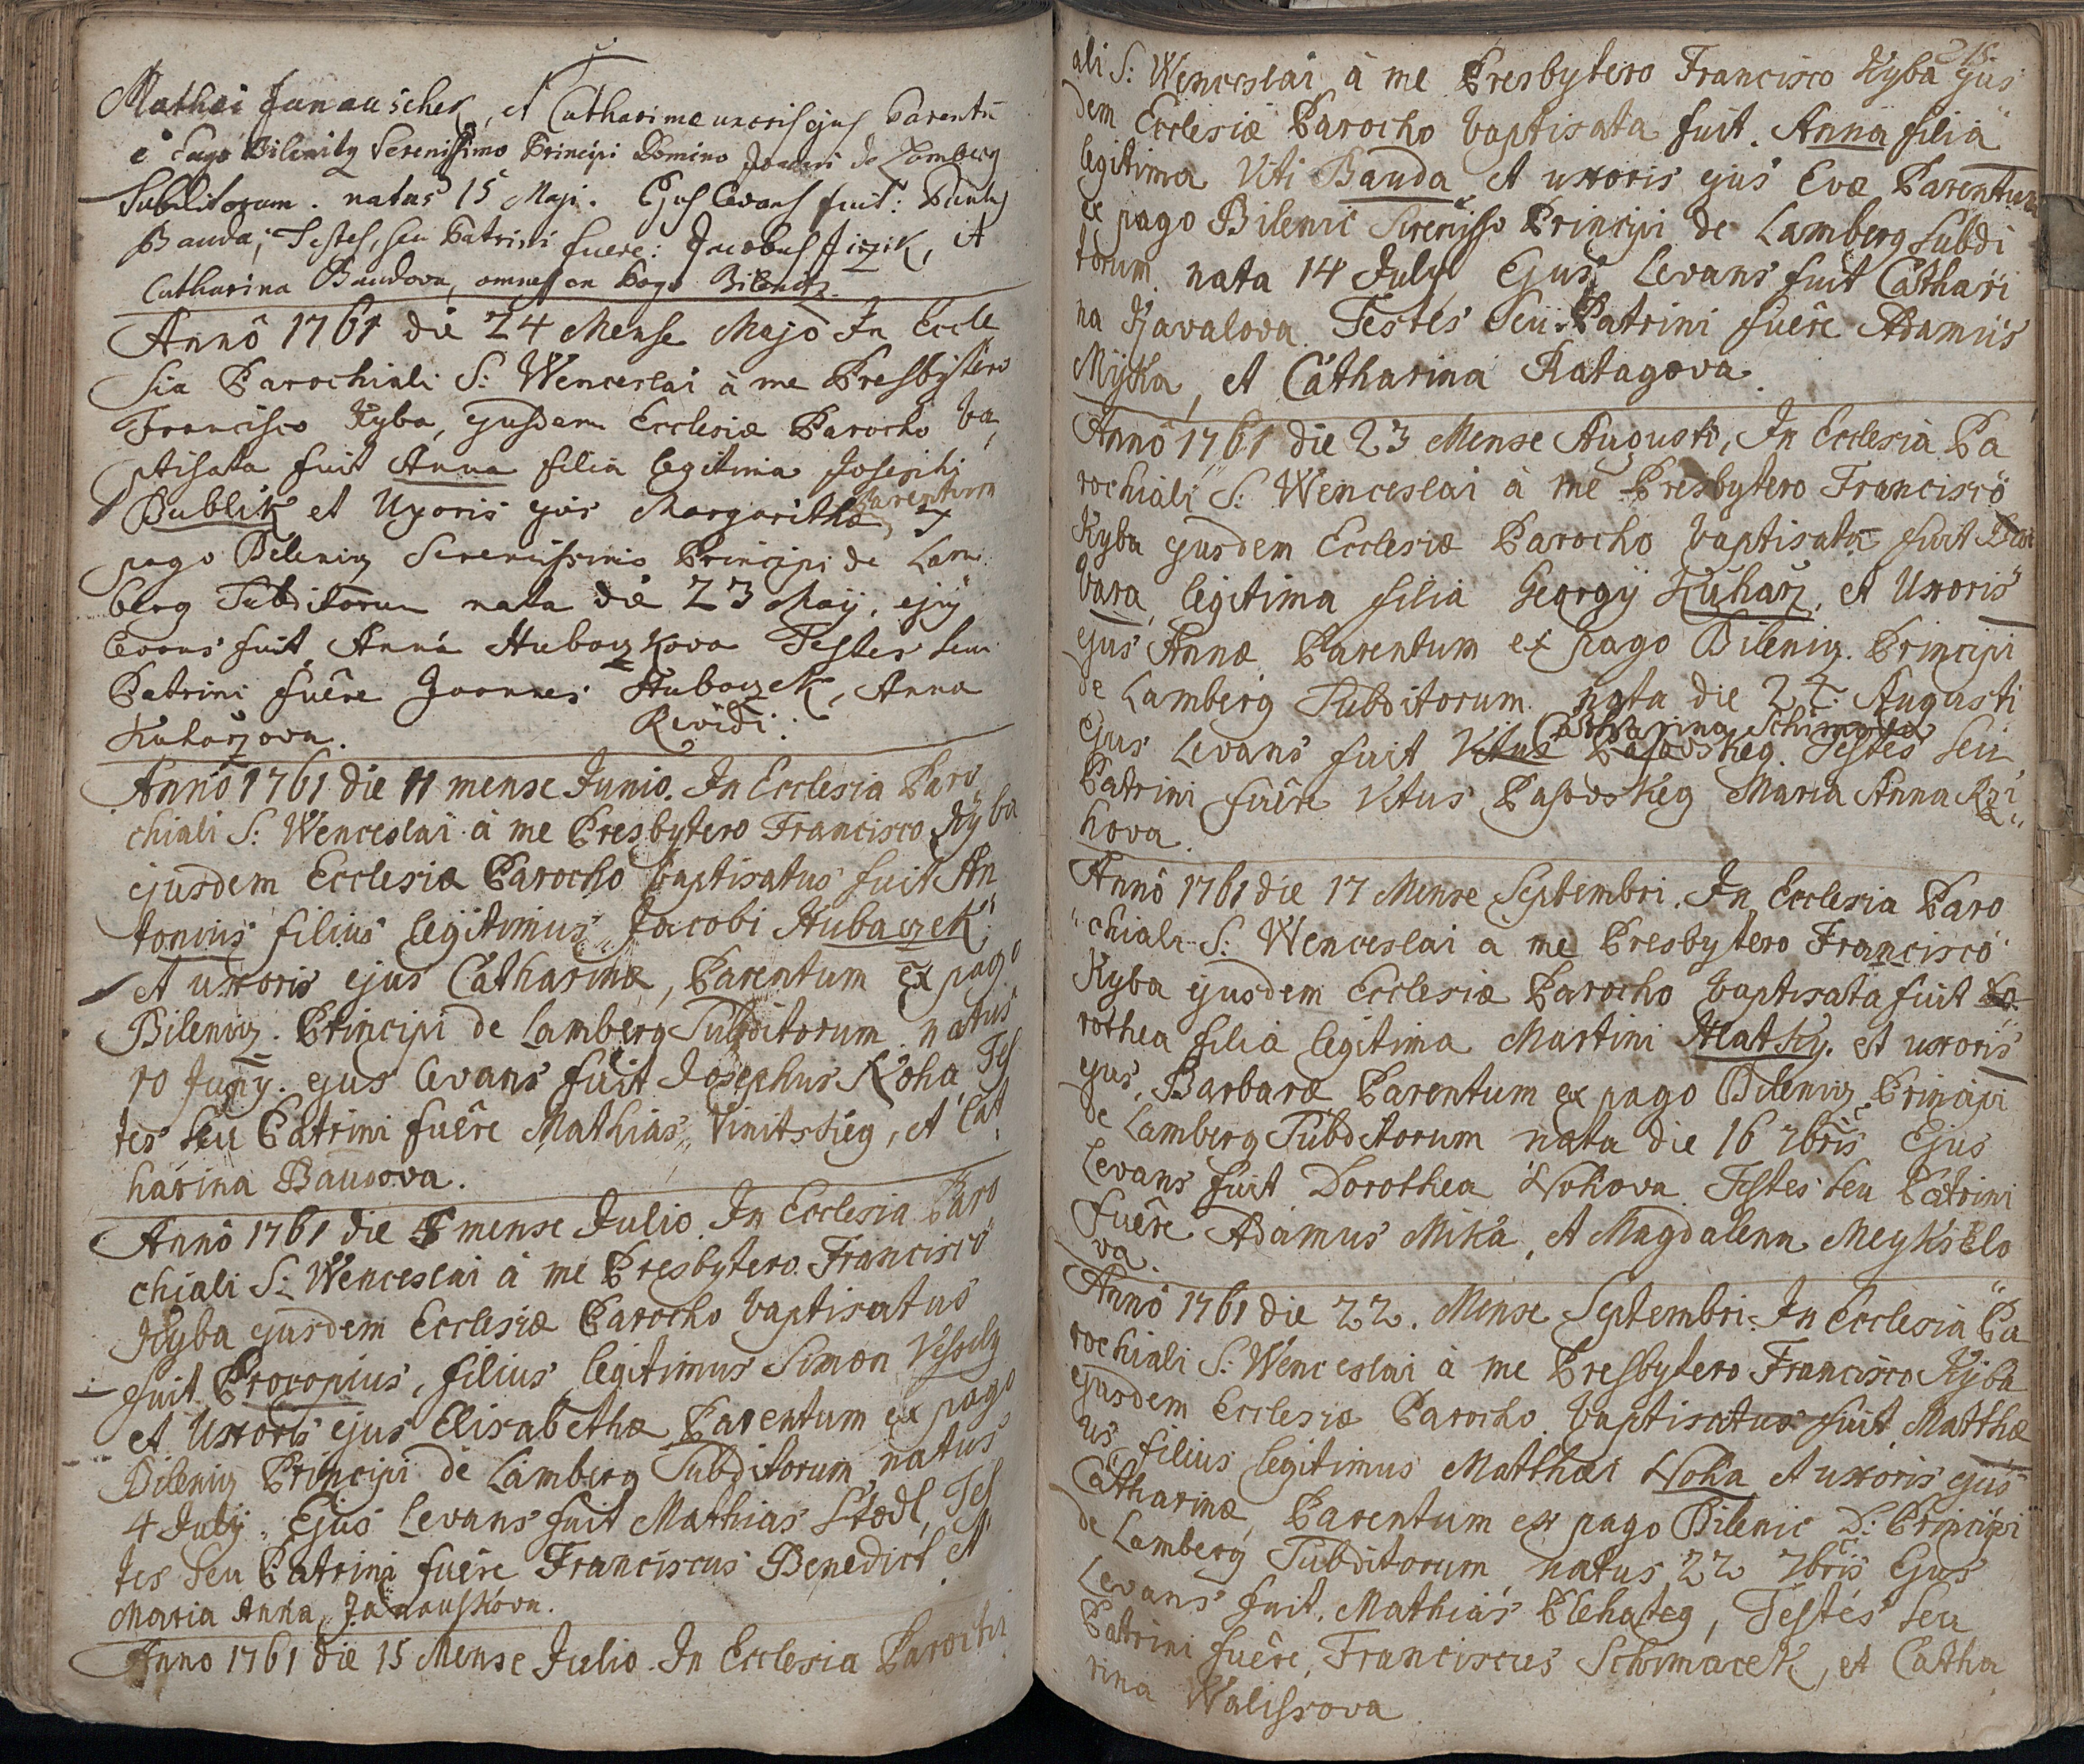 Mathei Janauschek, et Catharinae uxoris ejus Parentū
è Pago Bilenitz Serenissimo Principi Domino Joanni de Lamberg
Subditorum. natus 15 Maji. Ejus levans fuit:
Bauda; Testes, seu Patrini fuere: Jacobus Jirzik, et
Catharina Baudova, omnes ex Pago Bilenitz.
Annô 1761 die 24 Mense Majo In Eccle
sia Parochiali S: Wenceslai à me Presbytero
Francisco Ryba, ejusdem Ecclesiæ Parocho ba,
ptisata fuit Anna filia legitima Josephi
Bublik et Uxoris ejus Margarithæ Parentum
pago Bileniz Serenissimo Principi de Lam
berg Subditorum nata die 23 Maÿ. ejus
levans fuit Anna Hubaczkova Testes seu
Patrini fuêre Joannes Hubaczek, Anna
Kuharzova. Revidi:
Annô 1761 die 11 mense Junio. In Ecclesia Paro
chiali S: Wenceslai à me Presbytero Francisco Ryba
ejusdem Ecclesiæ Parocho baptisatus fuit An
tonius filius legitimus Jacobi Hubaczek
et uxoris ejus Catharinæ, Parentum ex pago
Bileniz. Principi de Lamberg Subditorum. natus
10 Junÿ. ejus levans fuit Josephus Noha Tes
tes seu Patrini fuêre Mathias Vinitskieg, et Cat
harina Baudova.
Annô 1761 die 5 mense Julio. In Ecclesia Paro
chiali S: Wenceslai à me Presbytero Francisco
Ryba ejusdem Ecclesiæ Parocho baptisatus
fuit Procopius, filius legitimus Simon Vesely
et Uxoris ejus Elisabethæ Parentum ex pago
Bileniz Principi de Lamberg Subditorum natus
4 Julÿ. Ejus levans fuit Mathias Stodl, Tes
tes seu Patrini fuêre Franciscus Benedict et
Maria Anna Janauskova.
Anno 1761 die 15 Mense Julio. In Ecclesia Parochi
ali S: Wenceslai à me Presbytero Francisco Ryba ejus
dem Ecclesiæ Parocho baptisata fuit. Anna filia
legitima Viti Bauda et uxoris ejus Evæ Parentum
ex pago Bilenic Serenisso Principi de Lamberg Subdi
torum. nata 14 July Ejus Levans fuit Cathari
na Kavalova. Testes Seu Patrini fuêre Adamus
Myka, et Catharina Ratagova.
Annô 1761 die 23 Mense Augusti, In Ecclesia Pa
rochiali S: Wenceslai à me Presbytero Francisco
Ryba ejusdem Ecclesiæ Parocho baptisata fuit Bar
bara, legitima filia Georgÿ Kuharz, et Uxoris
ejus Annæ Parentum ex pago Bileniz. Principi
de Lamberg Subditorum. nata die 22 Augusti
Catharina
ejus Levans fuit Testes seu
Patrini fuêre Vitus Pasovskeg Maria Anna Rzi
hova.
Annô 1761 die 17 Mense Septembri. In Ecclesia Paro
chiali S: Wenceslai a me Presbytero Francisco
Ryba ejusdem Ecclesiæ Parocho baptisata fuit Do
rothea filia legitima Martini Hlatky. et uxoris
ejus, Barbaræ Parentum ex pago Bileniz Principi
de Lamberg Subditorum nata die 16 7bris Ejus
Levans fuit Dorothea Nohova Testes seu Patrini
fuêre Adamus Mika, et Magdalena Meyksblo
va.
Annô 1761 die 22. Mense Septembri. In Ecclesia Pa
rochiali S: Wenceslai à me Presbytero Francisco Ryba
ejusdem Ecclesiæ Parocho baptisatus fuit Matthæ
us filius legitimus Matthæi Noha et uxoris ejus
Catharinæ, Parentum ex pago Bilenic D: Principi
de Lamberg Subditorum natus 22 7bris Ejus
Levans fuit. Mathias Plehateg, Testes seu
Patrini fuêre, Franciscus Schimacek, et Catha
rina Walissova